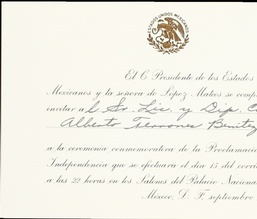 ESTADOS UNIDOS MEXICANOS
El C. Presidente de los Estados
Mexicanos y la señora de López Mateos se comp
invitar a l Sr. Lic. y Dip. C
Alberto Terrones Benítez
a la ceremonia conmemorativa de la Proclamación
Independencia que se efectuará el día 15 del corri
a las 22 horas en los Salones del Palacio Naciona
México, D. F., septiembre